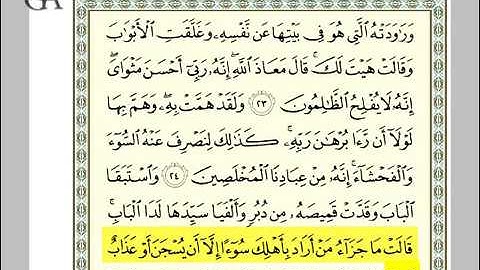 وَرَٰوَدَتْهُ ٱلَّتِى هُوَ فِى بَيْتِهَا عَن نَّفْسِهِۦ وَغَلَّقَتِ ٱلْأَبْوَٰبَ
وَقَالَتْ هَيْتَ لَكَ ۚ قَالَ مَعَاذَ ٱللَّهِ ۖ إِنَّهُۥ رَبِّىٓ أَحْسَنَ مَثْوَاىَ ۖ
إِنَّهُۥ لَا يُفْلِحُ ٱلظَّٰلِمُونَ ٢٣ وَلَقَدْ هَمَّتْ بِهِۦ ۖ وَهَمَّ بِهَا
لَوْلَآ أَن رَّءَا بُرْهَٰنَ رَبِّهِۦ ۚ كَذَٰلِكَ لِنَصْرِفَ عَنْهُ ٱلسُّوٓءَ
وَٱلْفَحْشَآءَ ۚ إِنَّهُۥ مِنْ عِبَادِنَا ٱلْمُخْلَصِينَ ٢٤ وَٱسْتَبَقَا
ٱلْبَابَ وَقَدَّتْ قَمِيصَهُۥ مِن دُبُرٍ وَأَلْفَيَا سَيِّدَهَا لَدَا ٱلْبَابِ ۚ
قَالَتْ مَا جَزَآءُ مَنْ أَرَادَ بِأَهْلِكَ سُوٓءًا إِلَّآ أَن يُسْجَنَ أَوْ عَذَابٌ